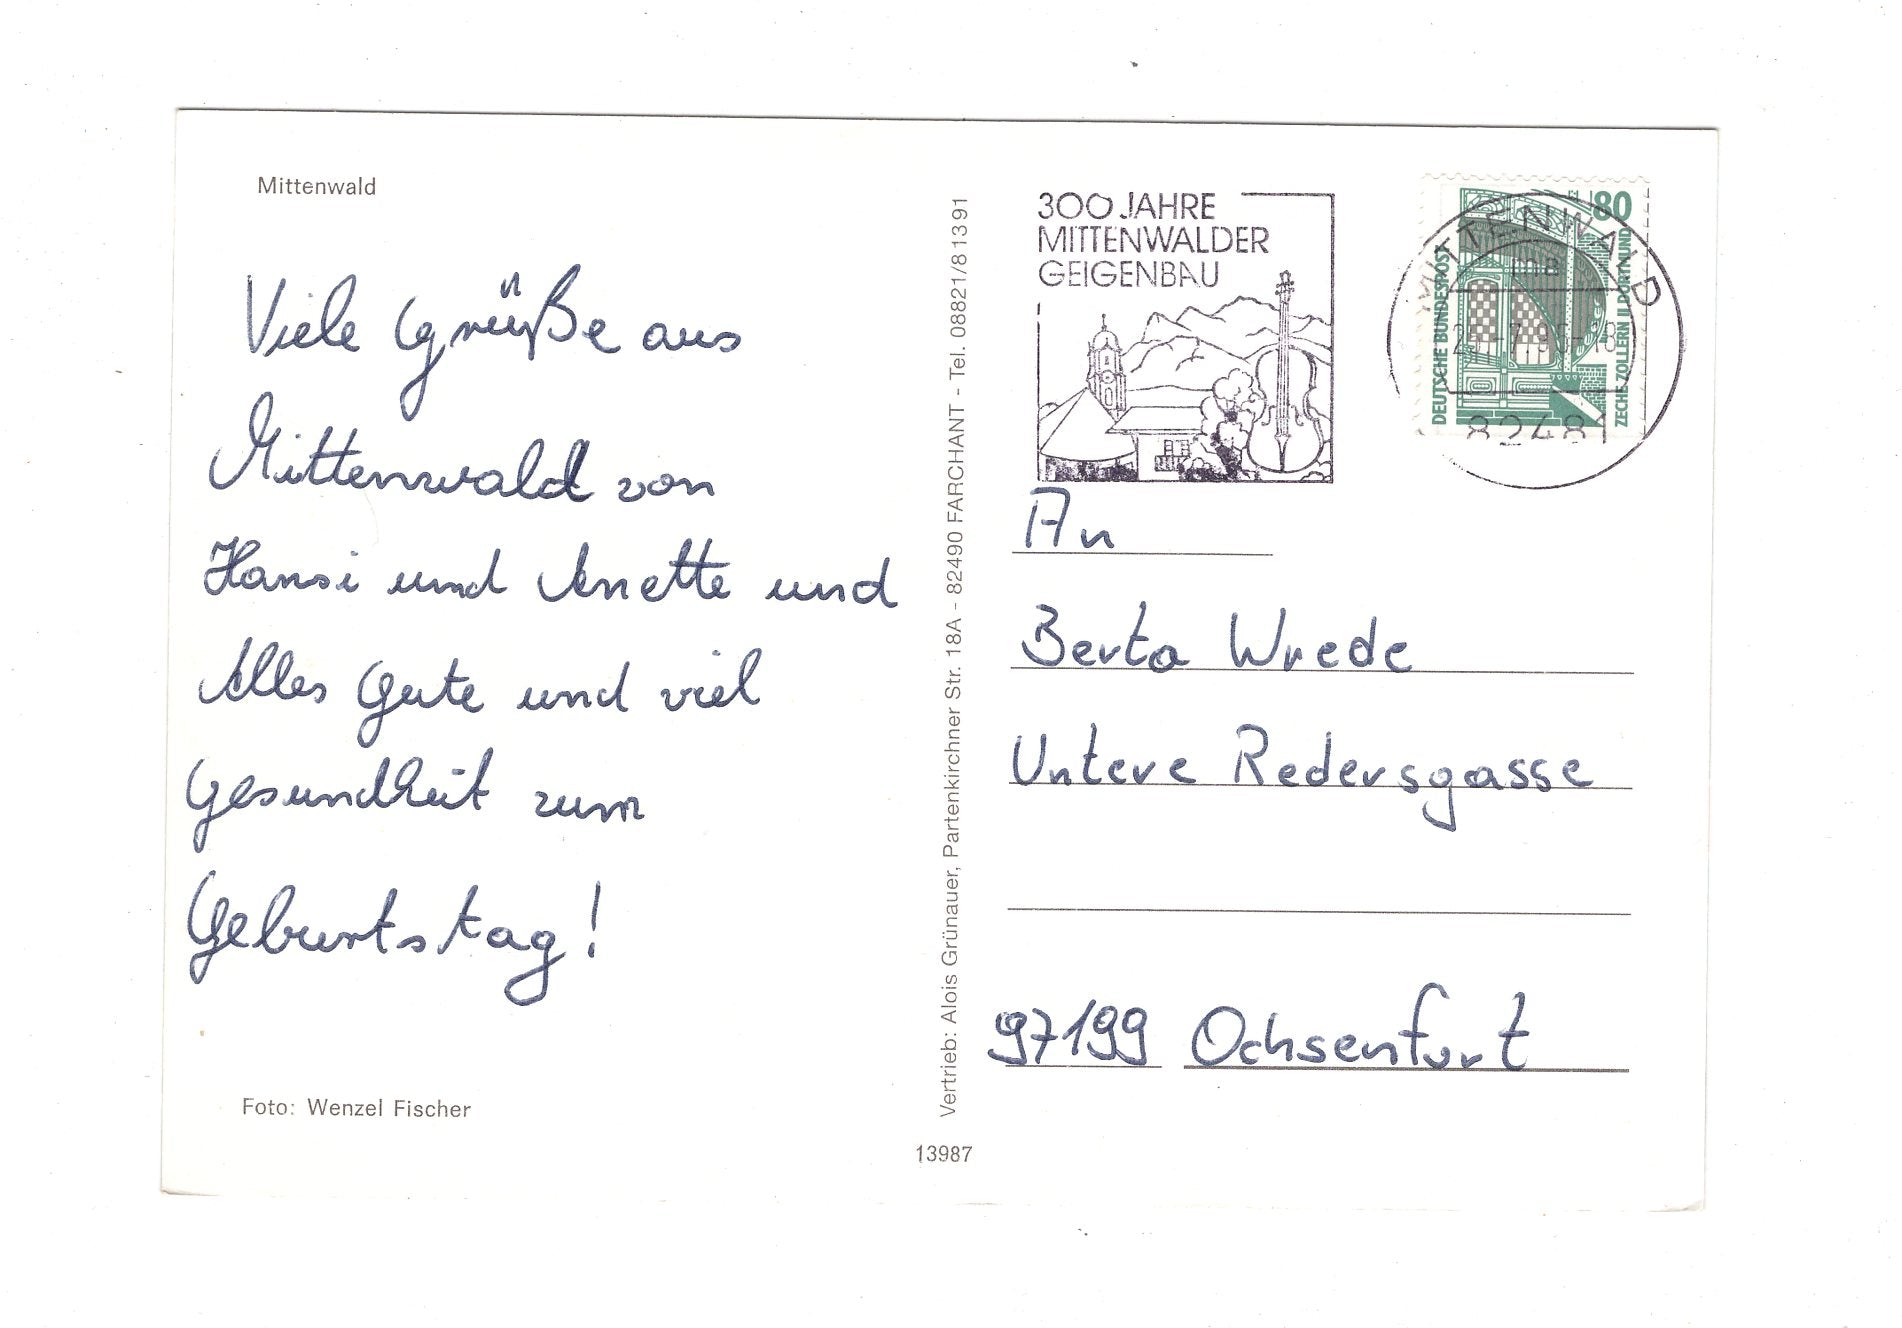 Mittenwald
Viele Grüße aus
Mittenwald von
Hansi und Anette und
Alles Gute und viel
Gesundheit zum
Geburtstag!
Foto: Wenzel Fischer
Vertrieb: Alois Grünauer, Partenkirchner Str. 18A - 82490 FARCHANT - Tel. 08821/81391
13987
300 JAHRE
MITTENWALDER
GEIGENBAU
DEUTSCHE BUNDESPOST
80
ZECHE ZOLLERN II DORTMUND
MITTENWALD
82481
An
Berta Wrede
Untere Redersgasse
97199 Ochsenfurt